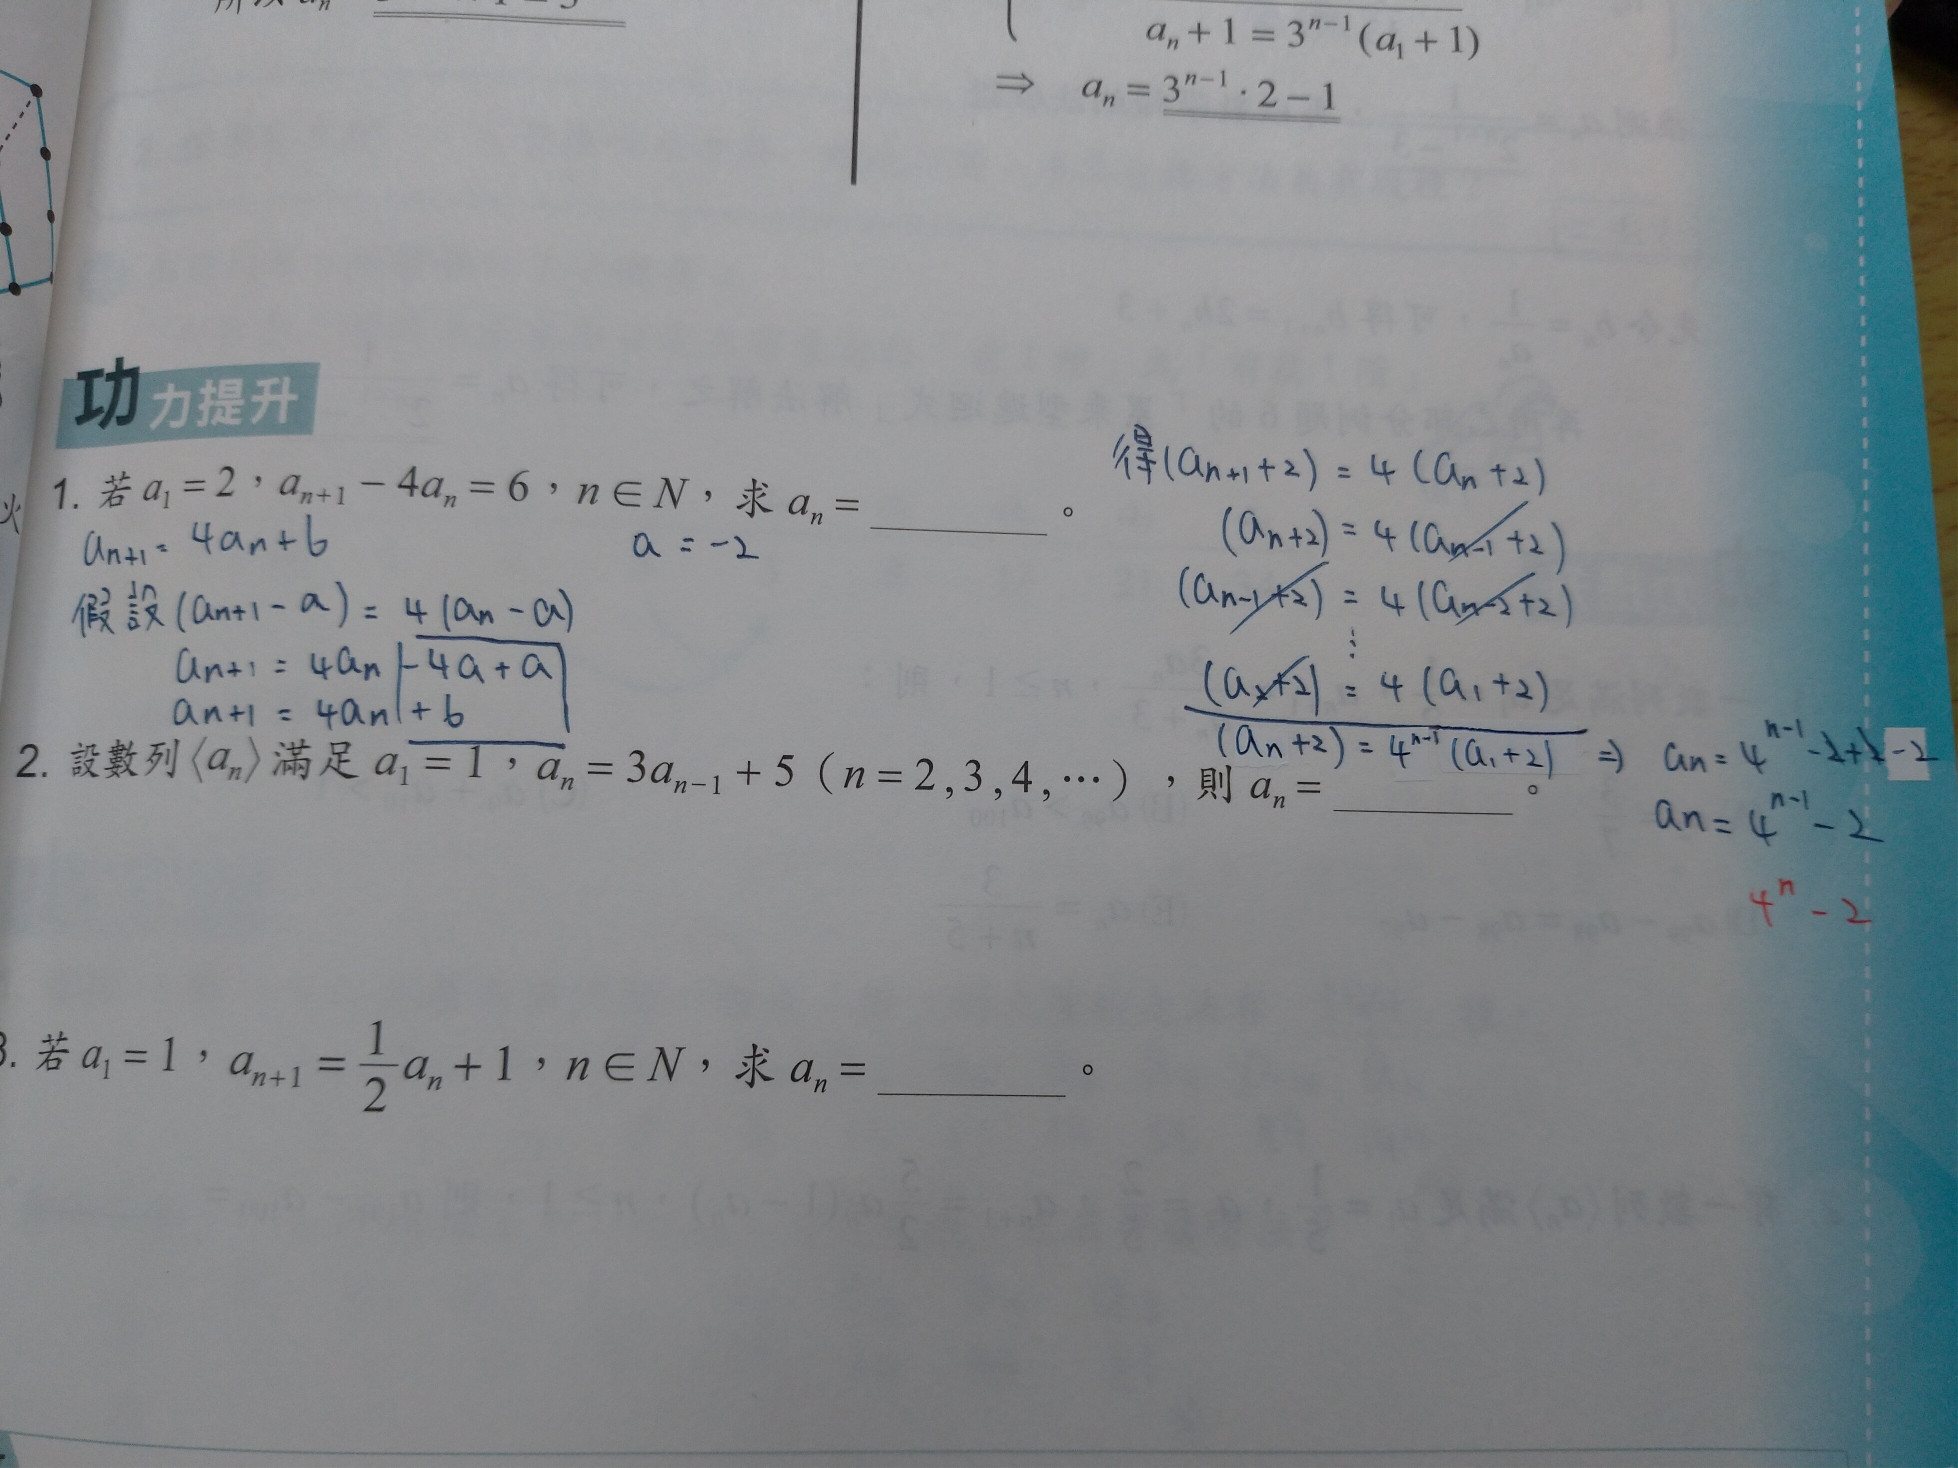 a_n + 1 = 3^{n-1}(a_1 + 1)
⇒ a_n = 3^{n-1} · 2 − 1
功力提升
1. 若 a_1 = 2，a_{n+1} − 4a_n = 6，n ∈ N，求 a_n = ________。
a_{n+1} = 4a_n + 6
a = -2
假設 (a_{n+1} - a) = 4(a_n - a)
a_{n+1} = 4a_n - 4a + a
a_{n+1} = 4a_n + 6
得 (a_{n+1} + 2) = 4(a_n + 2)
(a_n + 2) = 4(a_{n-1} + 2)
(a_{n-1} + 2) = 4(a_{n-2} + 2)
⋮
(a_2 + 2) = 4(a_1 + 2)
(a_n + 2) = 4^{n-1}(a_1 + 2) ⇒ a_n = 4^{n-1} - 2 + 2 - 2
a_n = 4^{n-1} - 2
4^n - 2
2. 設數列〈a_n〉滿足 a_1 = 1，a_n = 3a_{n−1} + 5（n = 2, 3, 4, ⋯），則 a_n = ________。
3. 若 a_1 = 1，a_{n+1} = \frac{1}{2}a_n + 1，n ∈ N，求 a_n = ________。